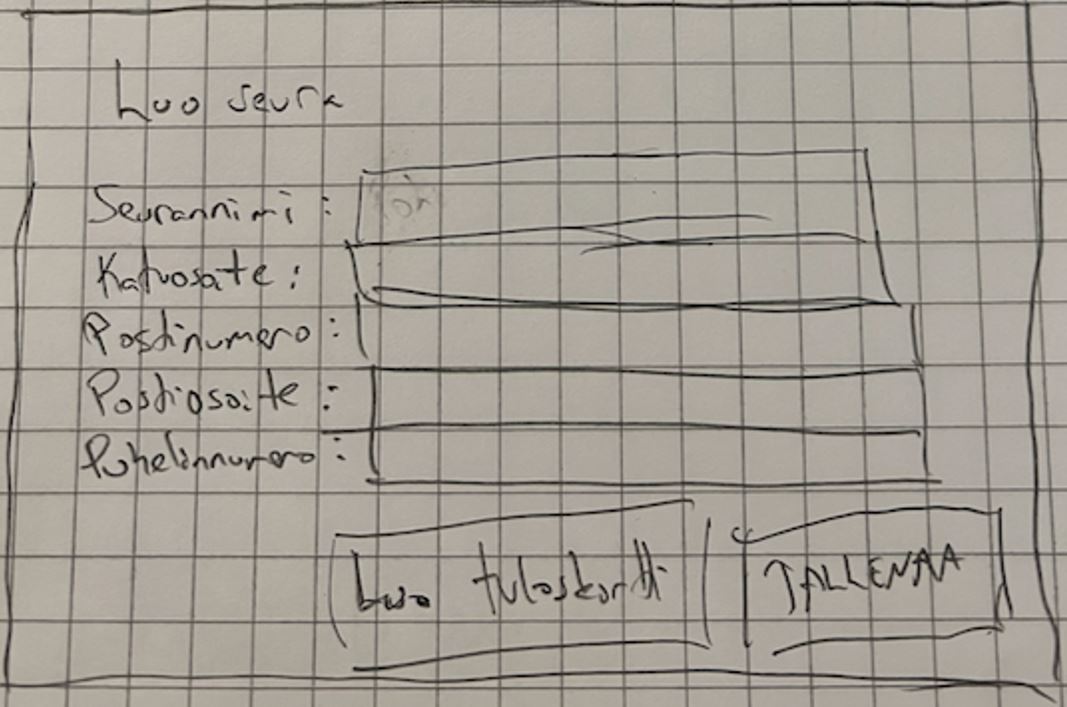 Luo seura
Seurannimi :
Katuosate :
Postinumero :
Postiosoite :
Puhelinnumero :
Luo tuloskortti
TALLENAA